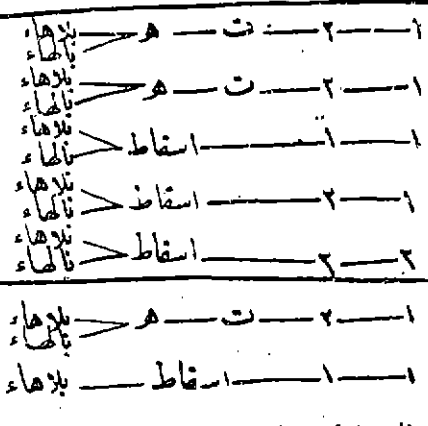 ١ — ٢ — ت — ه — بلا هاء
بالهاء
١ — ٢ — ت — ه — بلا هاء
بالهاء
١ — ١ — اسقاط — بلا هاء
بالهاء
١ — ٢ — اسقاط — بلا هاء
بالهاء
٢ — ٢ — اسقاط — بلا هاء
بالهاء
١ — ٢ — ت — ه — بلا هاء
بالهاء
١ — ١ — اسقاط — بلا هاء